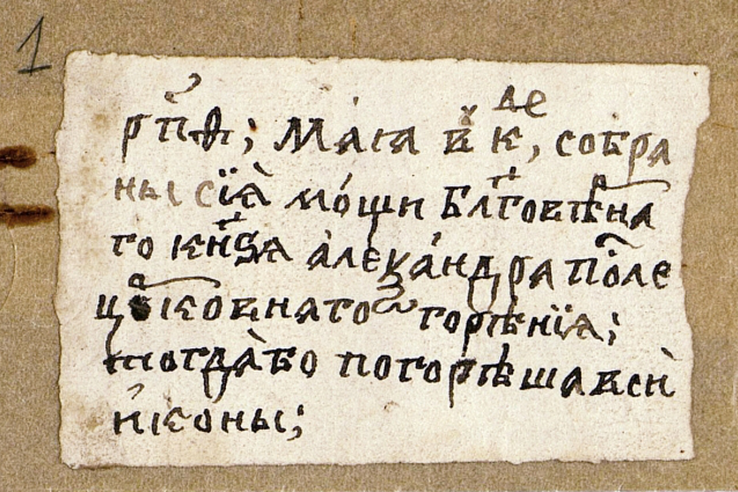 1
рп҃ѳ; Маїа в҃ к҃ де, собра
ны сїѧ̀ мо́щи Бл҃говѣрна
го кн҃ѕя а҆леѯа́ндра по́сле
цр҃ковнаго згорѣнїя;
тогда̀ бо погорѣша всѝ
и҆коны;